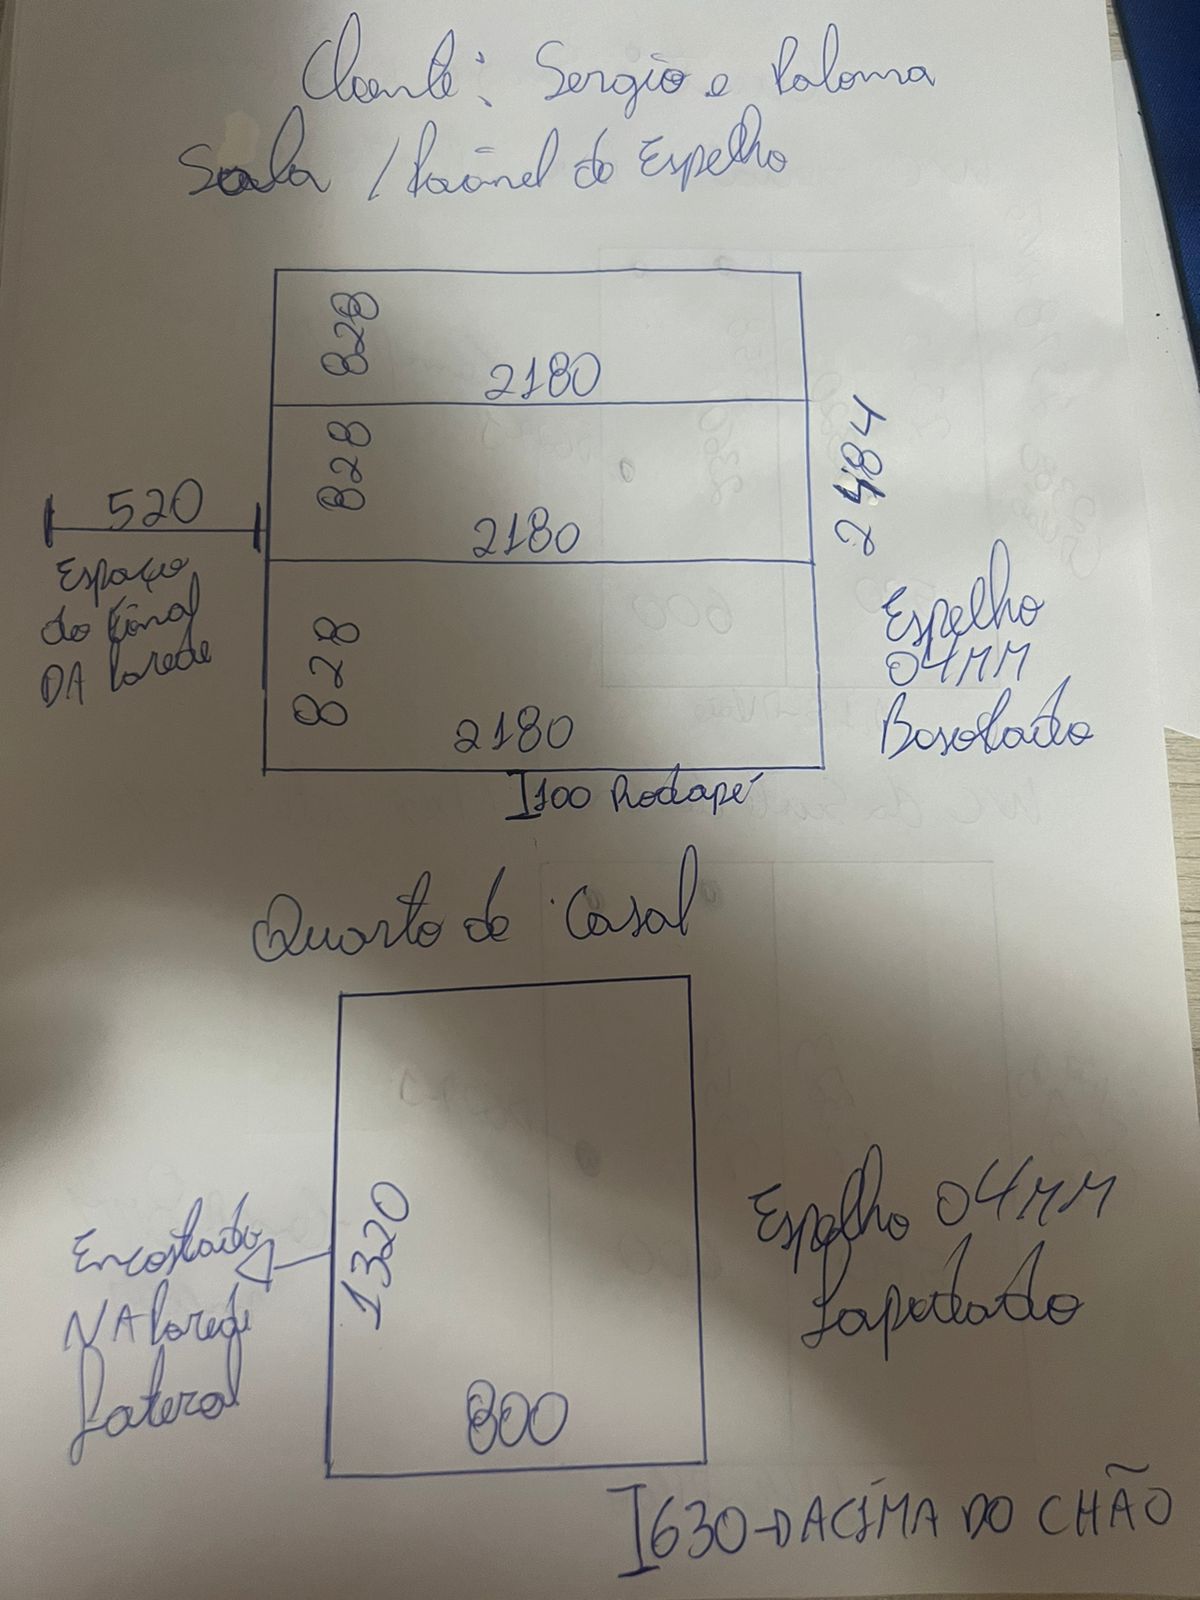 Cliente: Sergio e Paloma
Sala / Painel de Espelho
828
2180
828
2180
828
2180
2484
520
Espaço
do Final
DA Parede
Espelho
04MM
Bisotado
I 100 Rodapé
Quarto de Casal
1320
800
Encostado
NA Parede
Lateral
Espelho 04MM
Lapidado
I 630 - DACIMA DO CHÃO